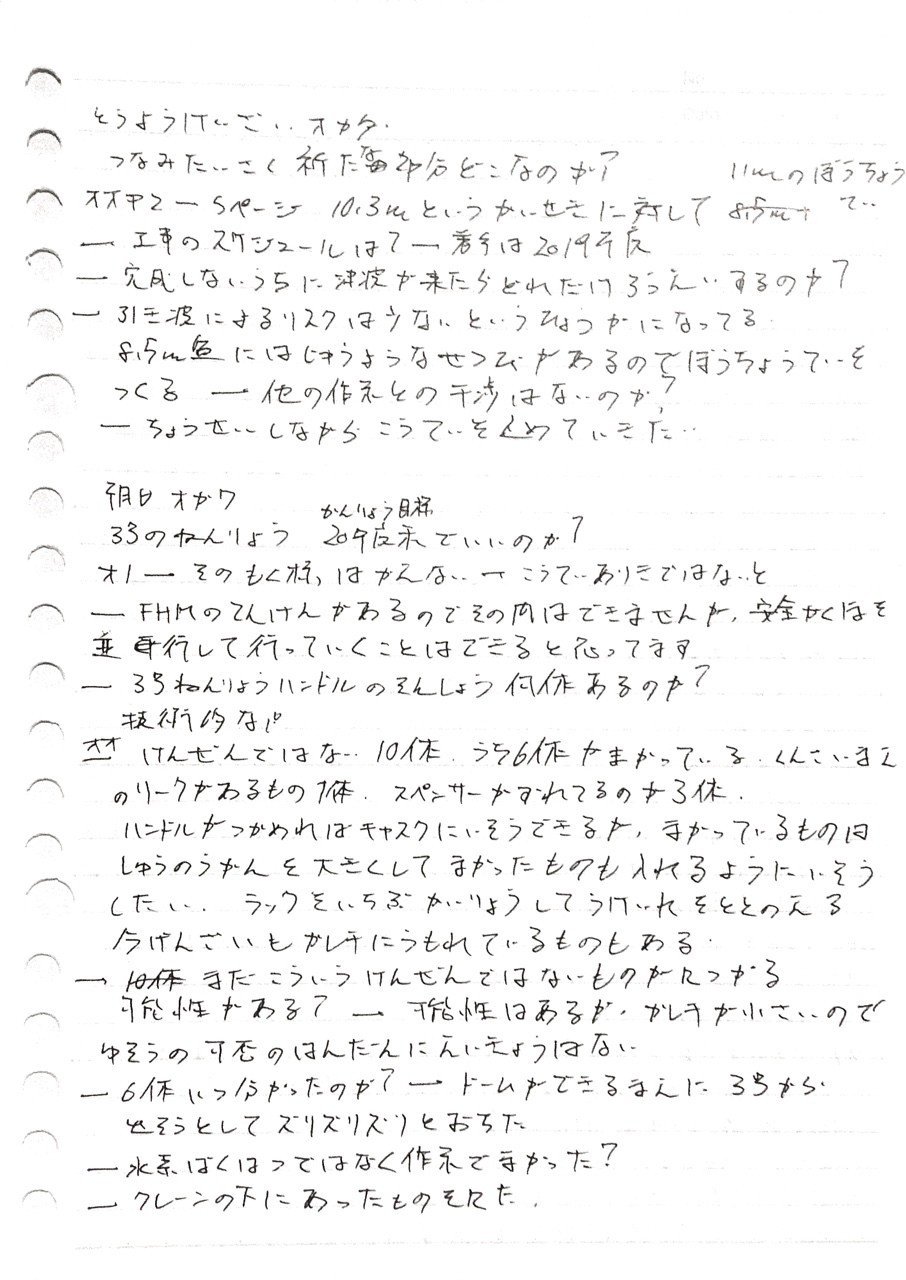 とうようけいざい オカダ
つなみたいさく 新たな部分どこなのか?
11mのぼうちょう
オオヤマ ー 5ページ 10.3mというかいせきに対して 8.5m てい
ー 工事のスケジュールは? ー 着手は2019年度
ー 完成しないうちに津波が来たらどれだけろうえいするのか?
ー 引き波によるリスクは少ないというひょうかになってる
8.5m盤にはじゅうようなせつびがあるのでぼうちょうていを
つくる ー 他の作業との干渉はないのか?
ー ちょうせいしながらこうていを込めていきたい
朝日 オガワ
かんりょう目標
3号のねんりょう 20年度末でいいのか?
オノ ー そのもく標はかえない ー こうていありきではないと
ー FHMのてんけんがあるのでその間はできませんが、安全かくほを
並行して行っていくことはできると思ってます
ー 3号ねんりょうハンドルのそんしょう何体あるのか?
技術的な
オオ けんぜんではない 10体. うち6体がまがっている. しんさいまえ
のリークがあるもの1体. スペンサーがずれてるのが3体.
ハンドルがつかめればキャスクにいそうできるが、まがっているものは
しゅうのうかんを大きくしてまがったものも入れるようにいそう
したい. ラックをいちぶかいりょうしてうけいれをととのえる
今げんざいもガレキにうもれているものもある.
ー 10体 まだこういうけんぜんではないものが見つかる
可能性がある? ー 可能性はあるが、ガレキが小さいので
ゆそうの可否のはんだんにえいきょうはない
ー 6体いつ分かったのか? ー ドームができるまえに 3号から
とそうとしてズリズリズリとおちた
ー 水素ばくはつではなく作業でまがった?
ー クレーンの下にあったものを見た.